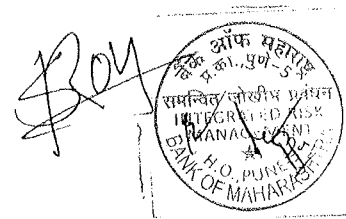 Roy
बैंक ऑफ महाराष्ट्र
प्र.का., पुणे-5
समन्वित जोखीम प्रबंधन
INTEGRATED RISK
MANAGEMENT
H.O. PUNE
BANK OF MAHARASHTRA